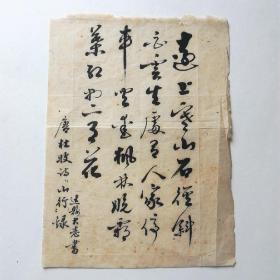 遠上寒山石徑斜
白雲生處有人家停
車坐愛楓林晚霜
葉紅於二月花
唐杜牧詩山行錄
書